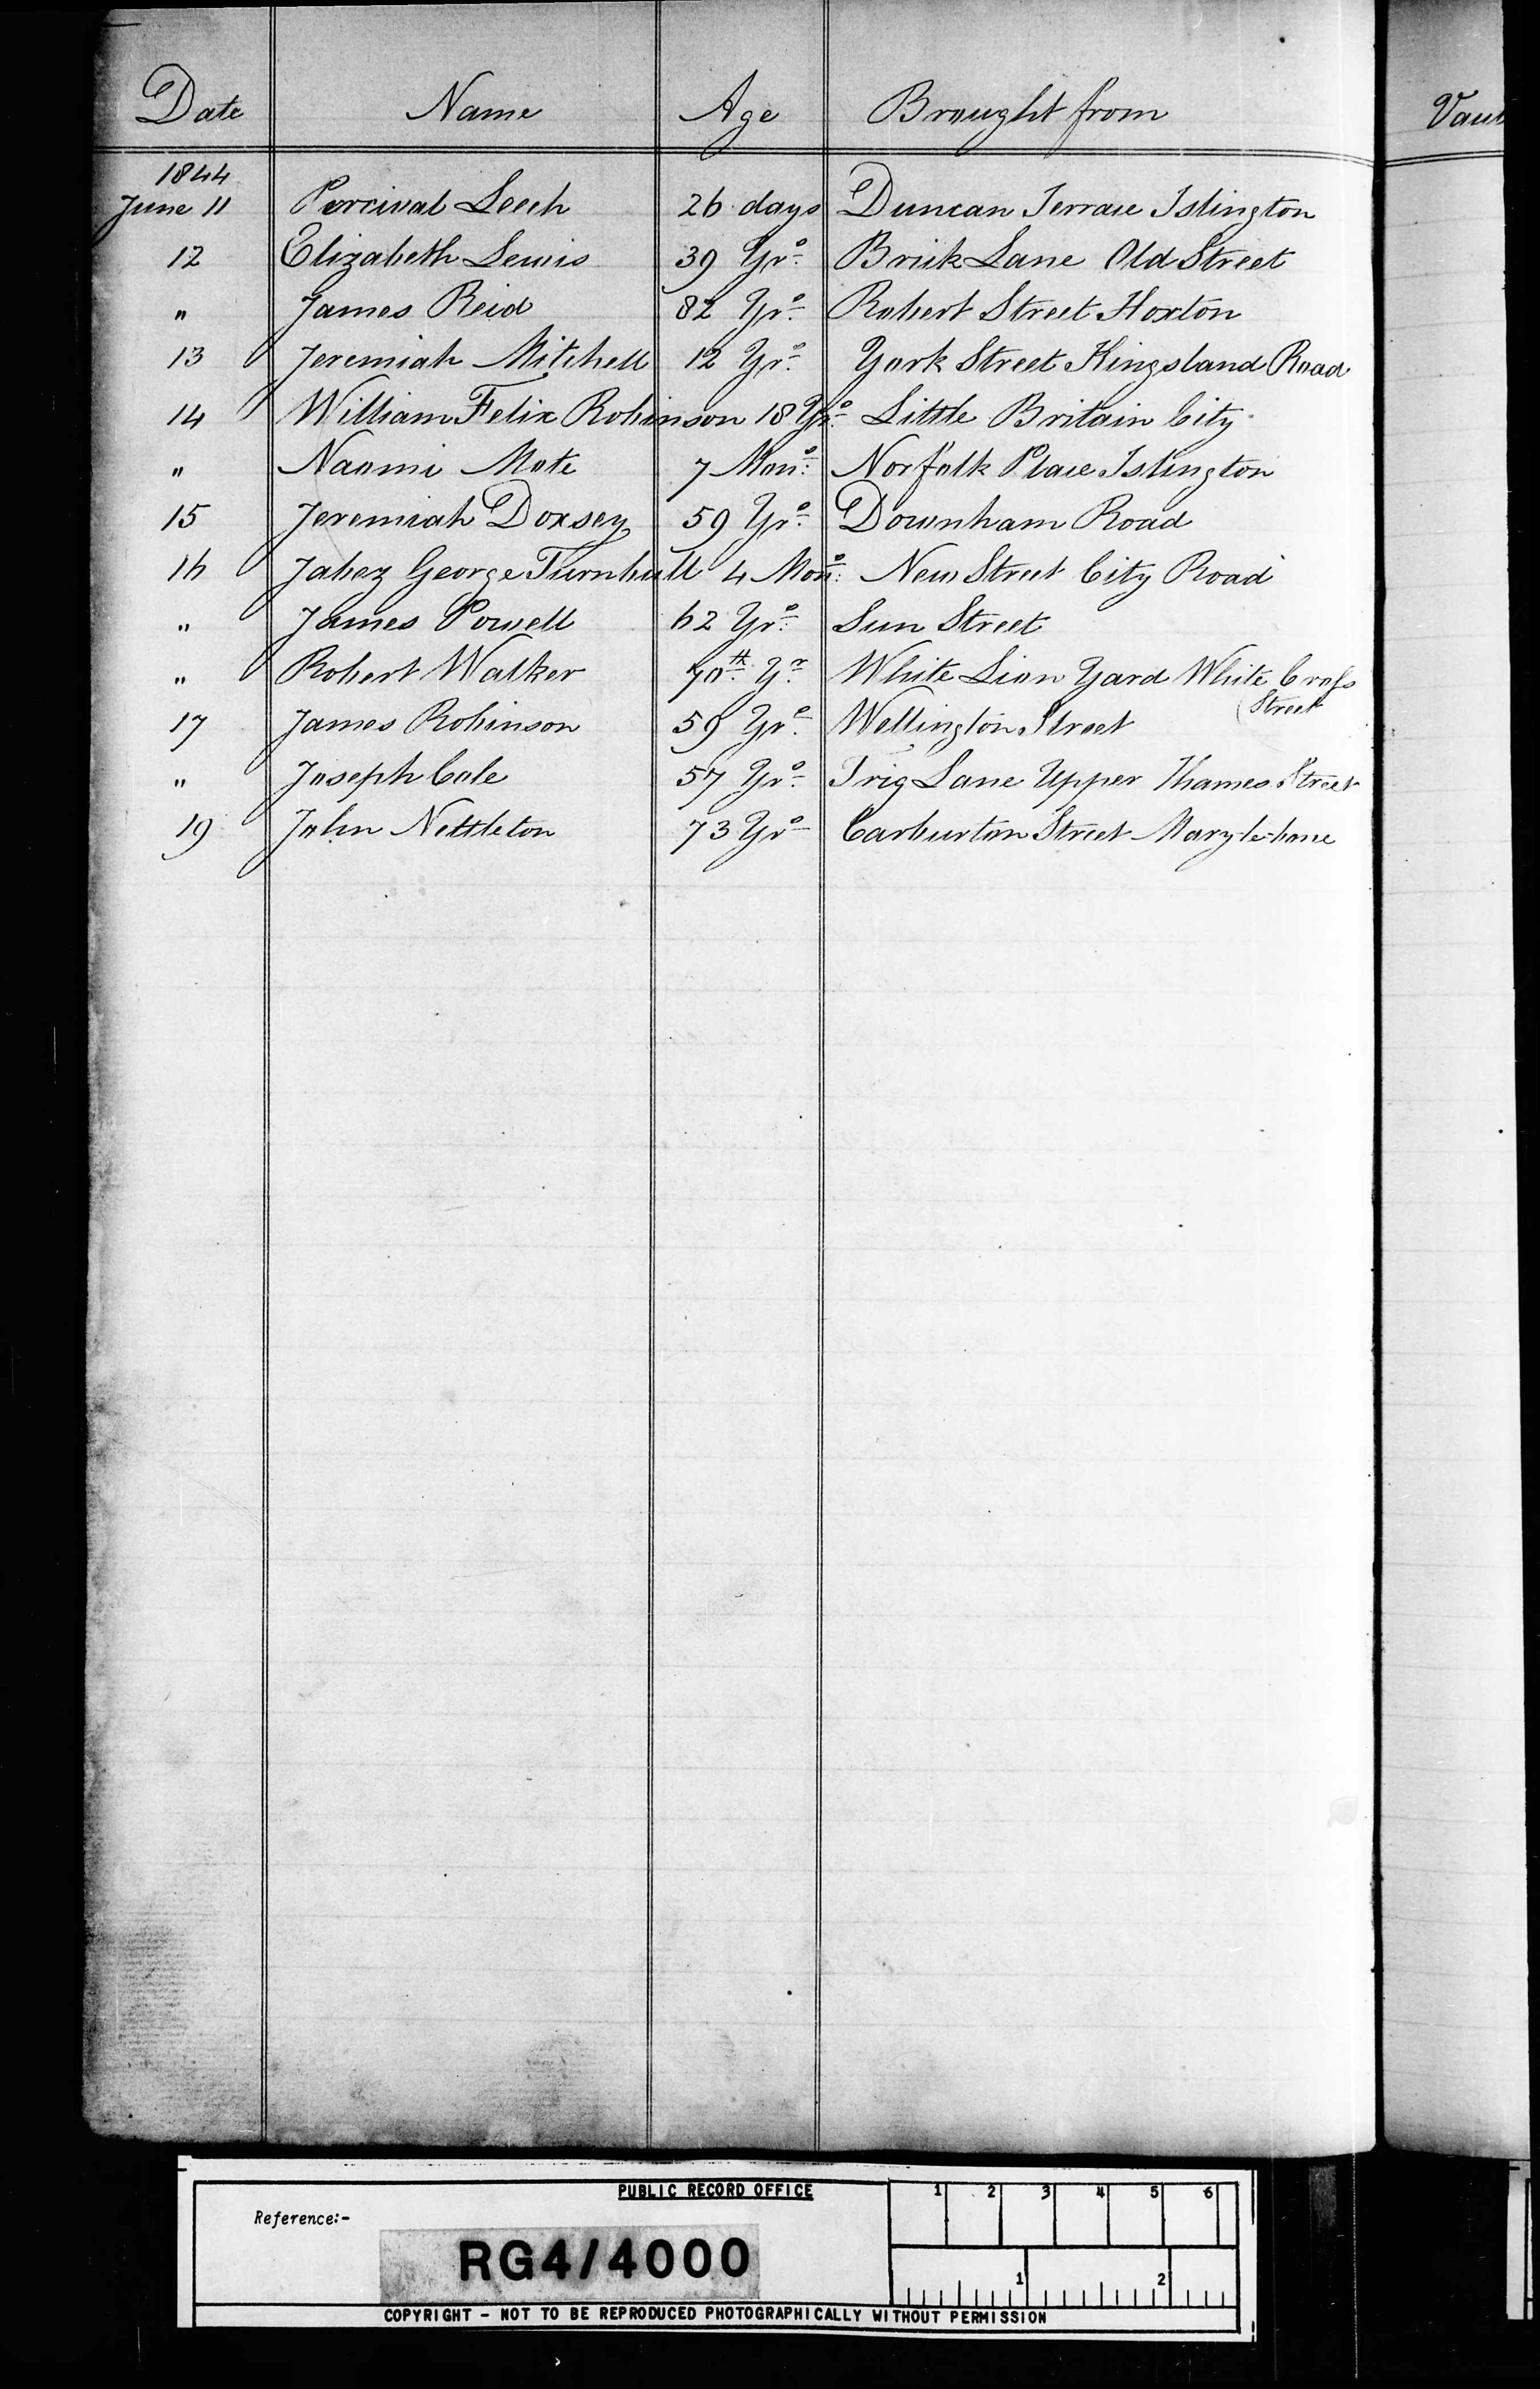 Date Name Age Brought from Vau
1844
June 11 Percival Leech 26 days Duncan Terrace Islington
12 Elizabeth Lewis 39 Yrs. Brick Lane Old Street
" James Reid 82 Yrs. Robert Street Hoxton
13 Jeremiah Mitchell 12 Yrs. York Street Kingsland Road
14 William Felix Robinson 18 Yrs. Little Britain City
" Naomi Mote 7 Mons: Norfolk Place Islington
15 Jeremiah Doxsey 59 Yrs. Downham Road
16 Jabez George Turnbull 4 Mons: New Street City Road
" James Powell 62 Yrs. Sun Street
" Robert Walker 70th. Yr. White Lion Yard White Cross
(Street
17 James Robinson 59 Yrs. Wellington Street
" Joseph Cole 57 Yrs. Trig Lane Upper Thames Street
19 John Nettleton 73 Yrs Carburton Street Mary-le-bone
PUBLIC RECORD OFFICE
Reference:-
RG4/4000
1 2 3 4 5 6
1 2
COPYRIGHT - NOT TO BE REPRODUCED PHOTOGRAPHICALLY WITHOUT PERMISSION